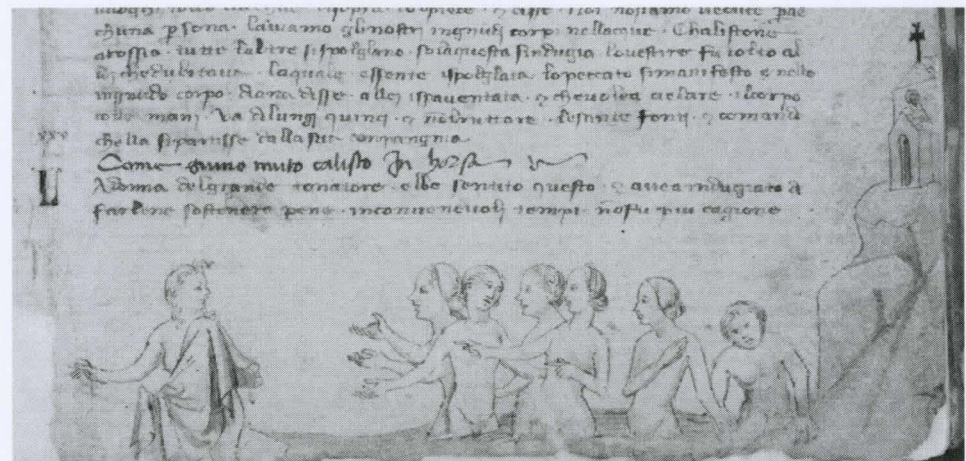 chuna persona · laviamo gli nostri ingnudi corpi nellacque · Chalistone
arossio · tutte laltre si spolglano · sola questa sindugia · lo vestire fu tolto al
lei che dubitava · laquale essente ispolglata · lo peccato si manifesto · e nello
ingnudo corpo · diana disse · allei ispaventata · che volea cielare · il corpo
colle mani · Va dilungi quinci · e nō bruttare · le sante fonti · e comandò
chella si partisse dalla sua conpangnia
Come giuno muto calisto In horsa
L Adonna del grande tonatore · ebbe sentito questo · e avea indugiato a
farlene sostenere pene · inconvenevoli tempi · nō fu piu cagione